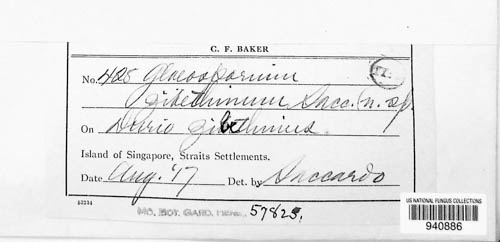 C. F. BAKER
No. 485 Gloeosporium
zibethinum Sacc. n. sp.
On Durio zibethinus.
Island of Singapore, Straits Settlements.
Date Aug. '17 Det. by Saccardo
MO. BOT. GARD. HERB. 57825.
US NATIONAL FUNGUS COLLECTIONS
940886